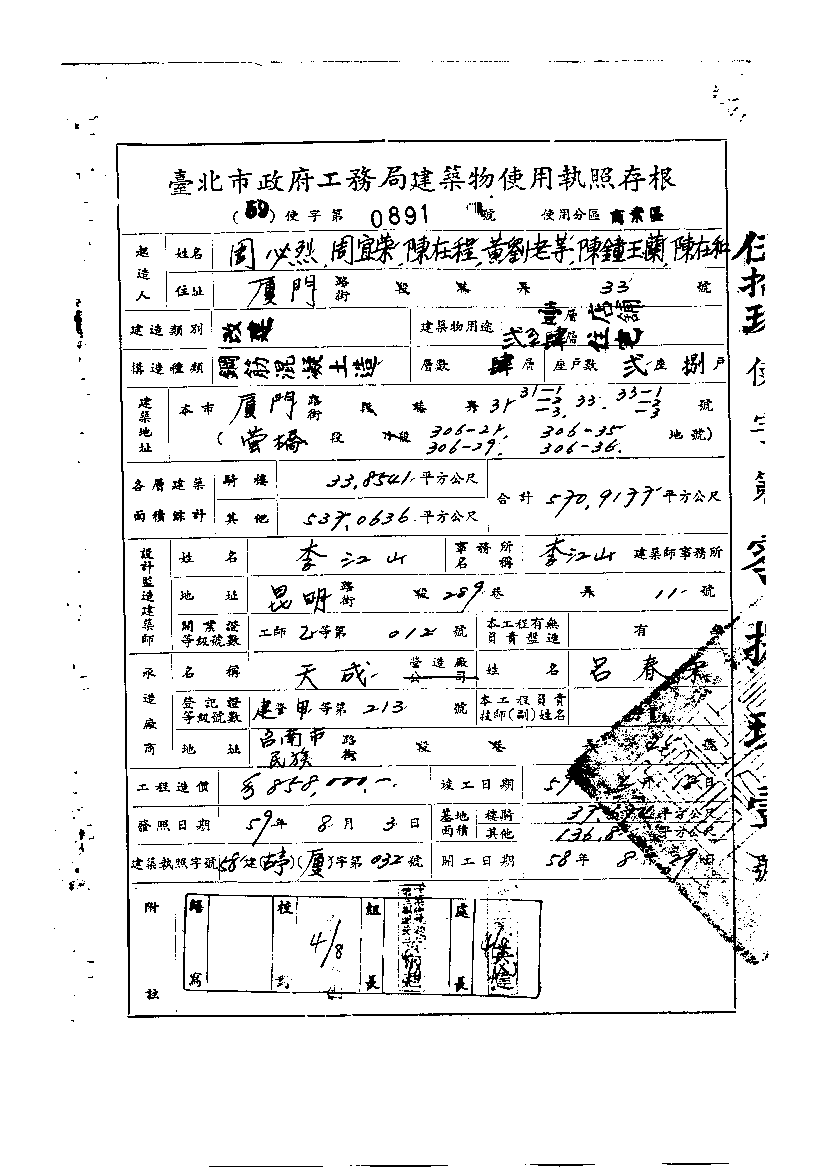 臺北市政府工務局建築物使用執照存根
(59)使字第0891號 使用分區 商業區
起造人 姓名 周必烈,周宜榮,陳在程,黃劉老等,陳鐘玉蘭,陳在和
住址 厦門 路街 段 巷 弄 33 號
建造類別 改建 建築物用途 層店鋪 貳至肆層住宅
構造種類 鋼筋混凝土造 層數 肆層 座戶數 貳座捌戶
建築地址 本市 厦門 路街 段 巷 弄 31 31-1 -2 -3. 33. 33-1 -2 -3 號
(螢橋 段 小段 306-28. 306-35 地號)
306-29. 306-36.
各層建築面積綜計 騎樓 33.8541平方公尺 合計 570.9177平方公尺
其他 537.0636平方公尺
設計監造建築師 姓名 李江山 事務所名稱 李江山 建築師事務所
地址 昆明 路街 段 289 巷 弄 11 號
開業證等級號數 工師乙等第 012 號 本工程有無負責監造 有
承造廠商 名稱 天成 營造廠公司 姓名 呂春榮
登記證等級號數 建營甲等第 213 號 本工程負責技師(副)姓名
地址 台南市民族 路街 段 巷 號
工程造價 858,000.- 竣工日期 59 月 12日
發照日期 59年 8月 3日 基地面積 騎樓 平方公尺
其他 136.8 平方公尺
建築執照字號 58建(古亭)(厦)字第032號 開工日期 58年 8月 29日
附註 繕寫 校對 4/8 組長 處長